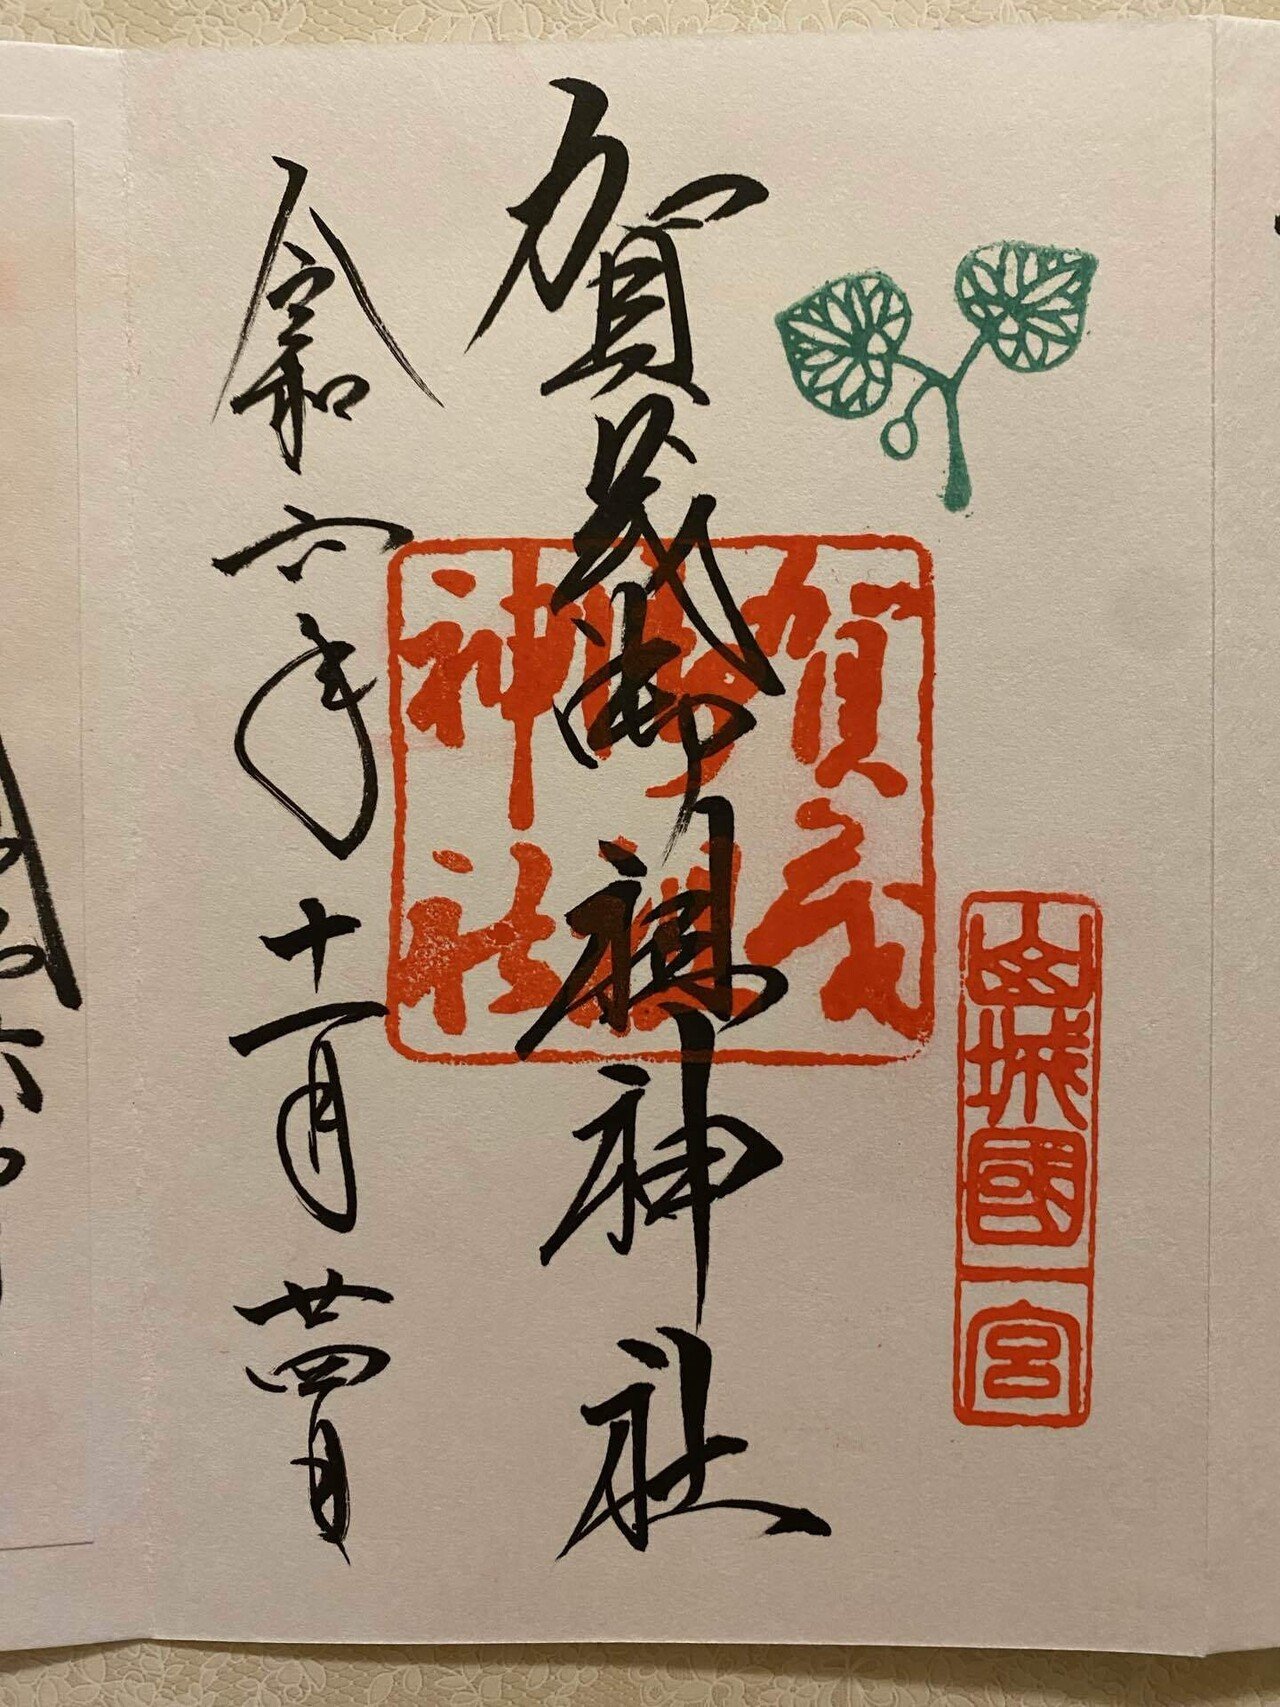 山城國一宮
賀茂御祖神社
賀茂御祖神社
令和六年十一月廿四日